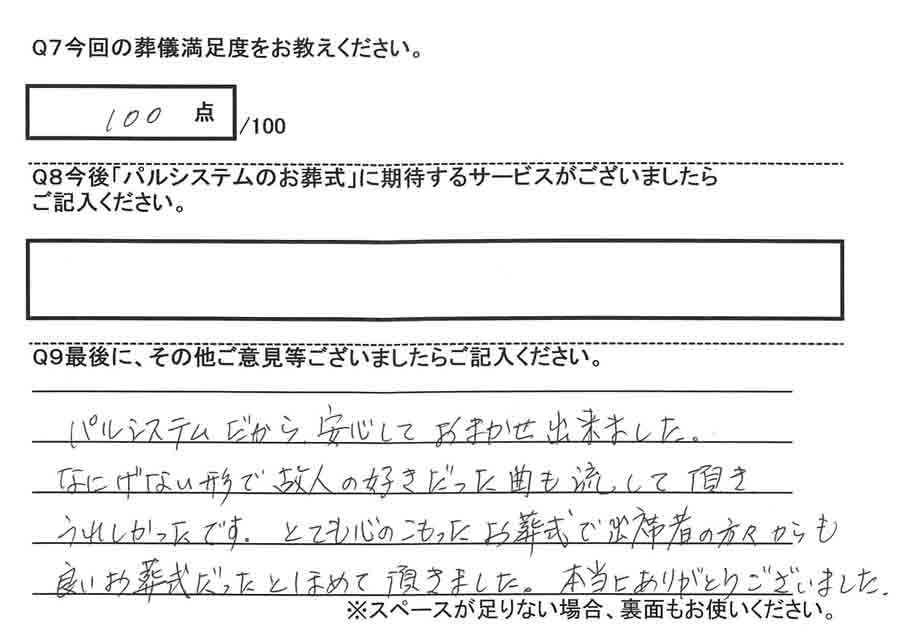 Q7今回の葬儀満足度をお教えください。
100 点 /100
Q8今後「パルシステムのお葬式」に期待するサービスがございましたら
ご記入ください。
Q9最後に、その他ご意見等ございましたらご記入ください。
パルシステムだから、安心しておまかせ出来ました。
なにげない形で故人の好きだった曲も流して頂き
うれしかったです。とても心のこもったお葬式で出席者の方々からも
良いお葬式だったとほめて頂きました。本当にありがとうございました。
※スペースが足りない場合、裏面もお使いください。